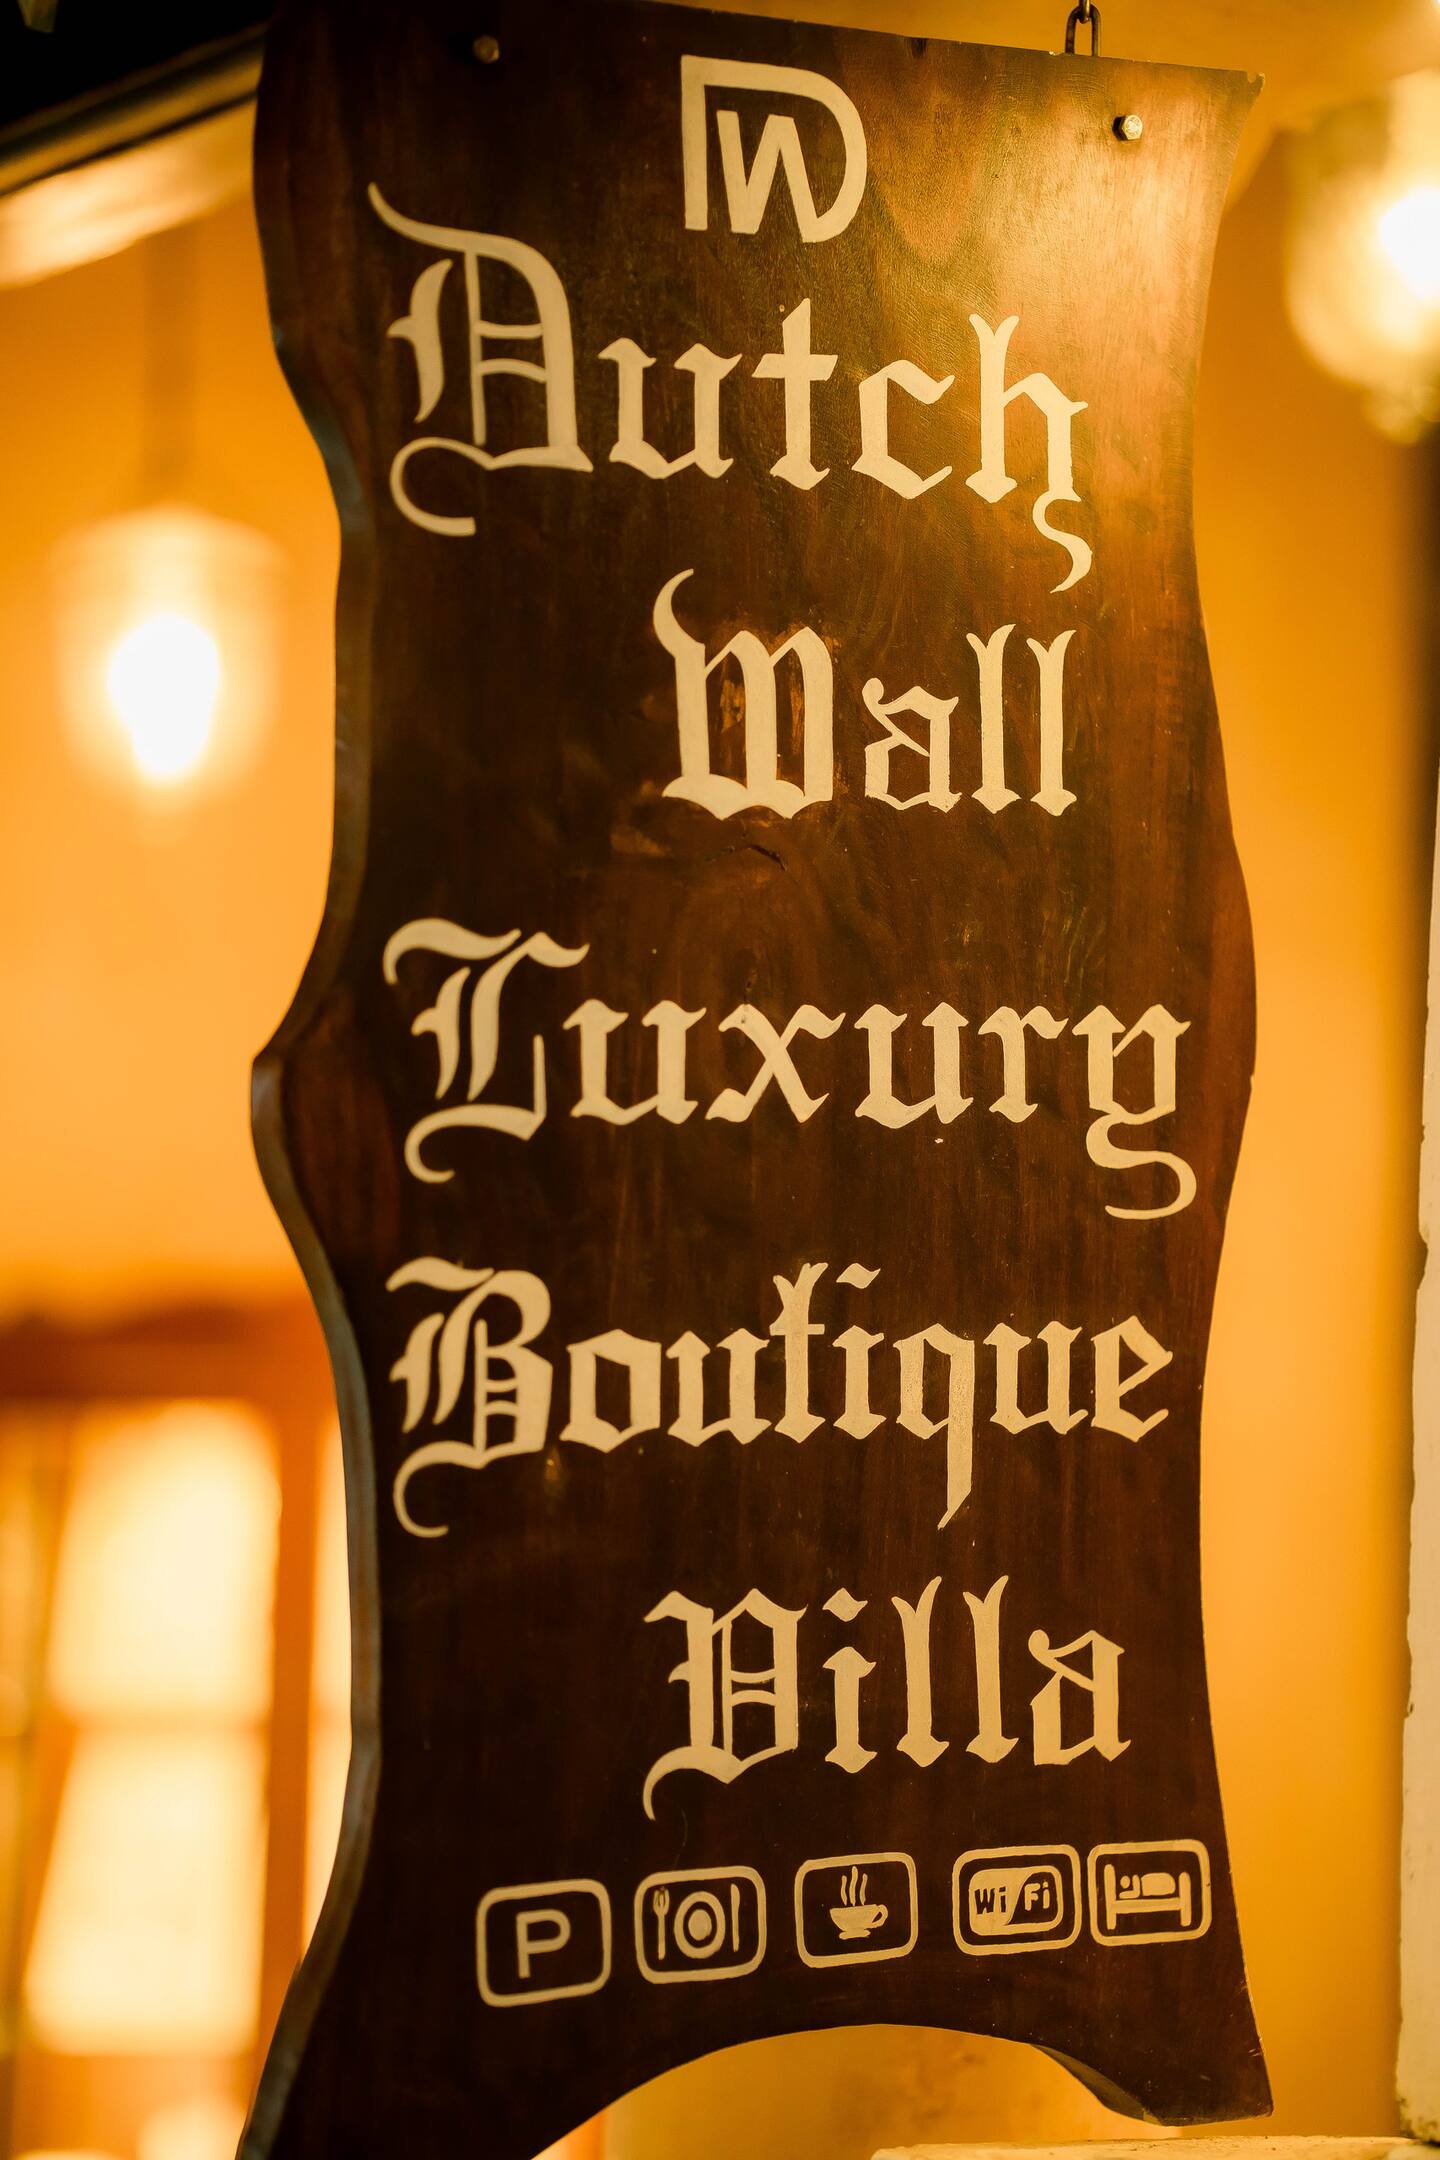 DW
Dutch
Wall
Luxury
Boutique
Villa
P Wi Fi